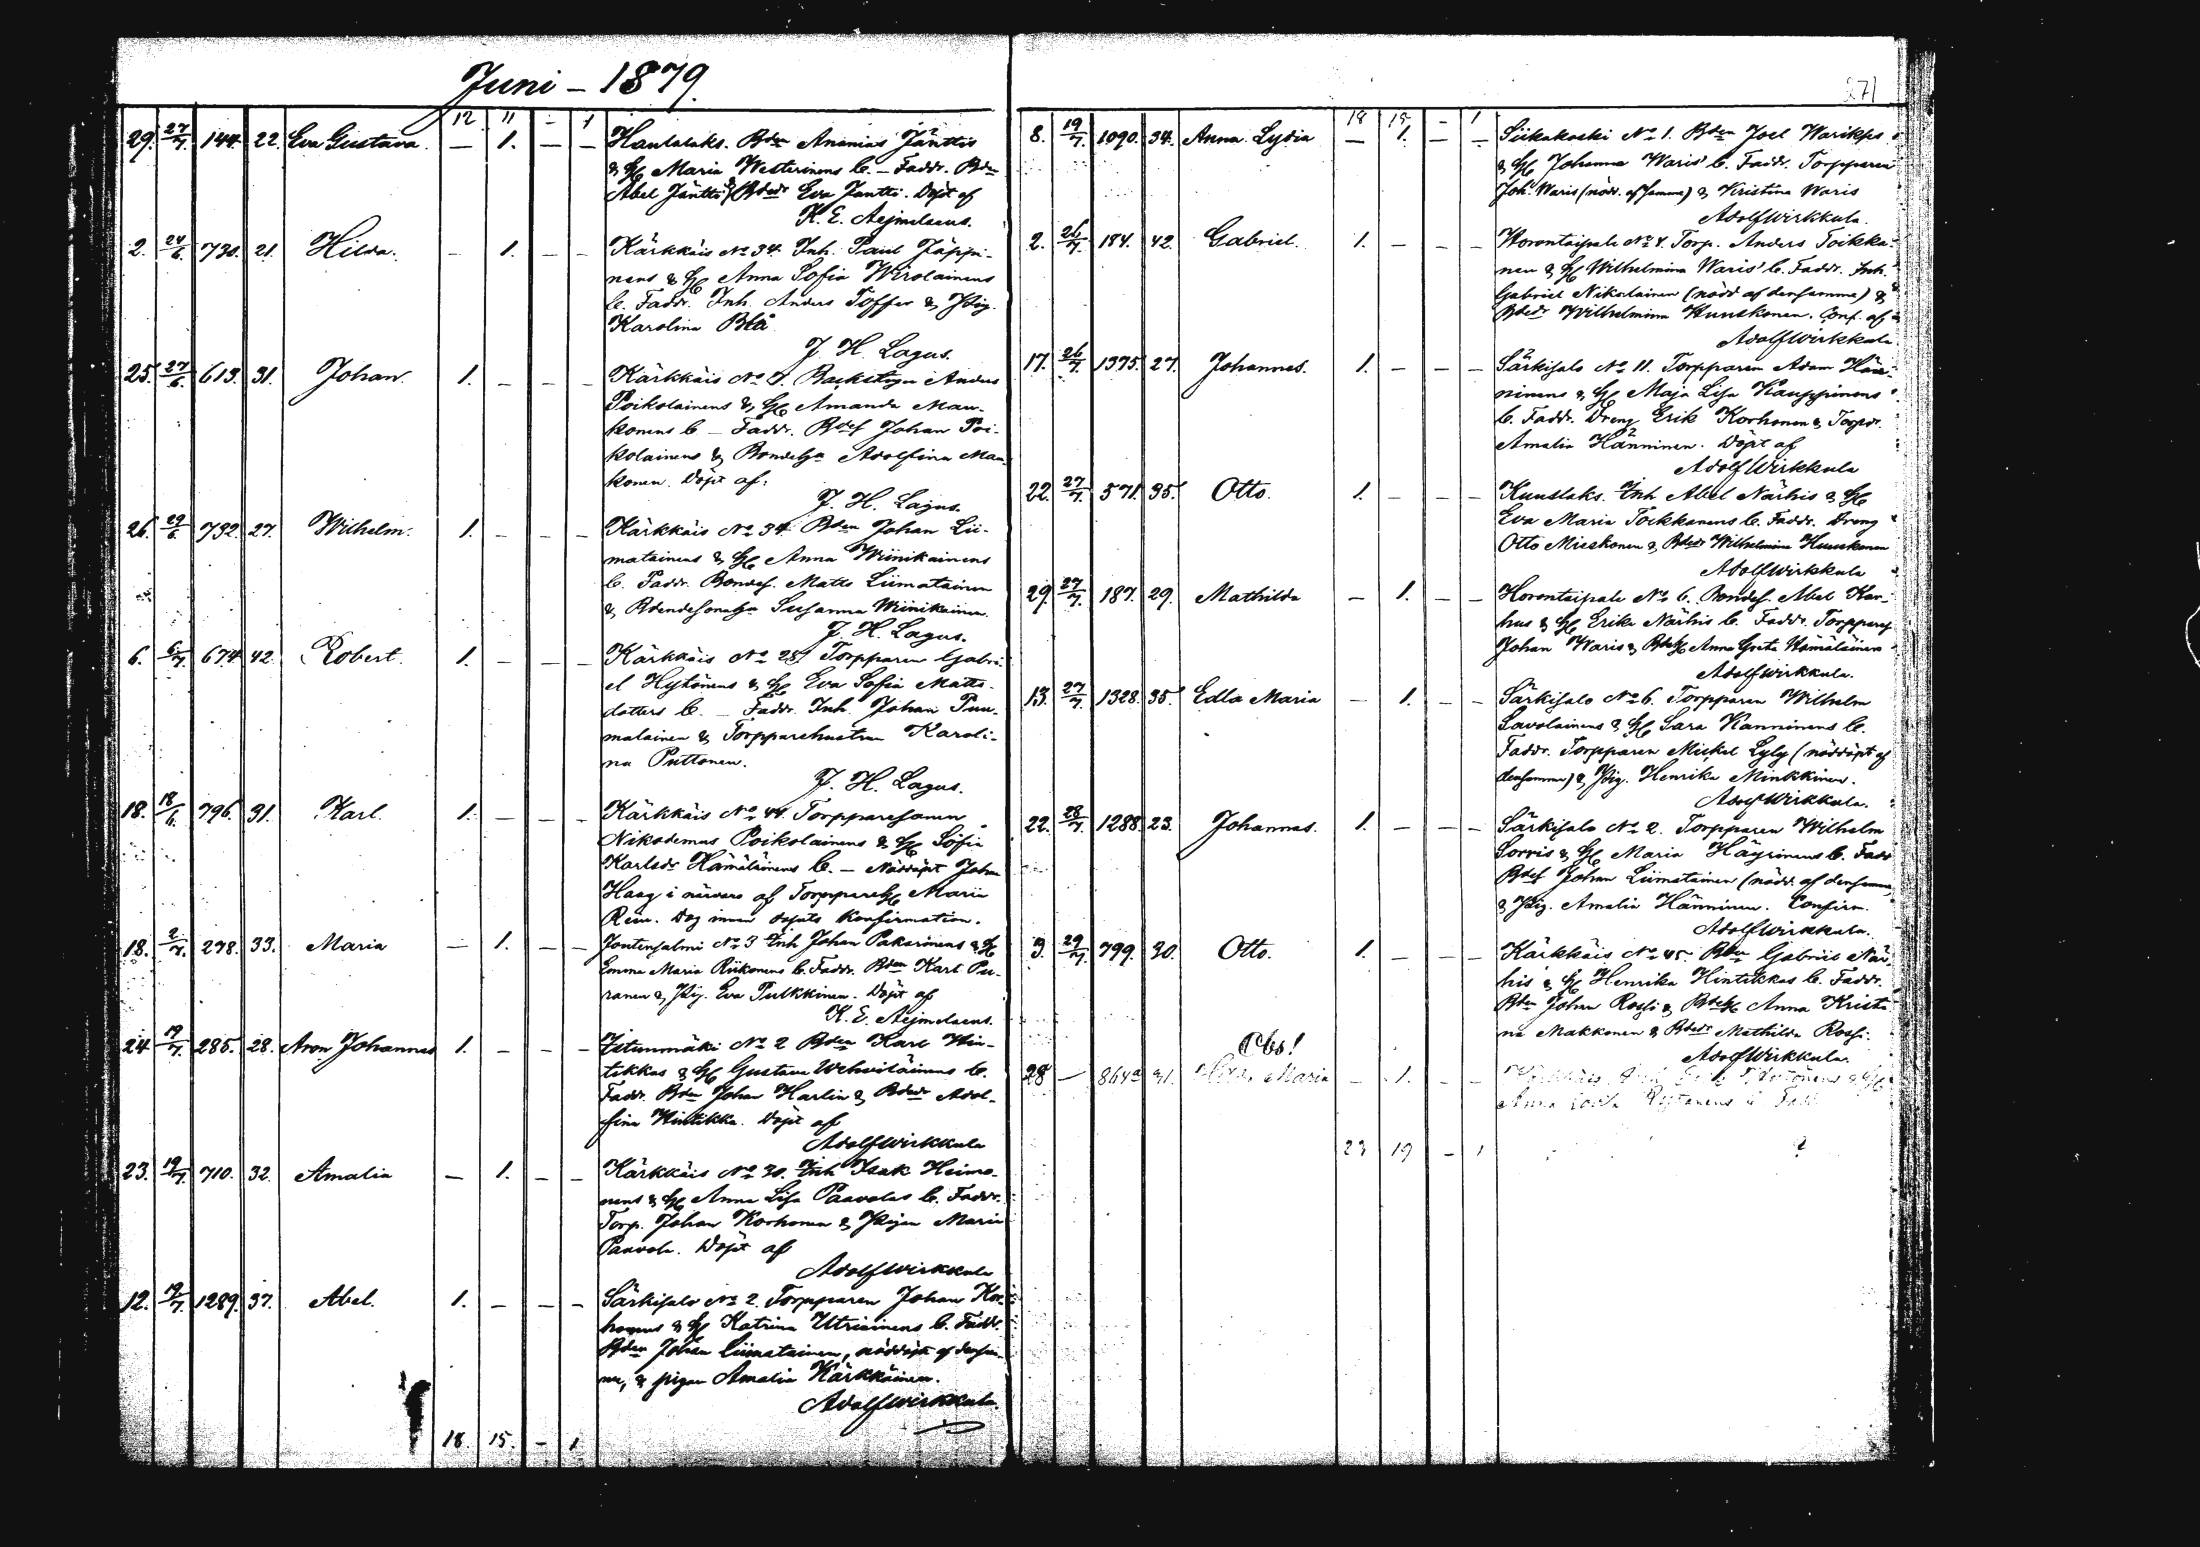 Juni – 1879.
271
12 11 – 1
29. 27/7. 144. 22. Eva Gustava. — 1. — — Hautalaks. Bden Ananias Jänttis
& H Maria Westerinens b. – Faddr. Bdn
Abel Jäntti & Bdedr Eva Jäntti. Döpt af
K. E. Aejmelaeus.
2. 24/6. 730. 21. Hilda. — 1. — — Kärkkäis No 34. Inh. Paul Jäppi-
nens & H Anna Sofia Wirolainens
b. Faddr. Inh. Anders Toffer & Pig.
Karolina Blå
J. H. Lagus.
25. 27/6. 613. 31. Johan. 1. — — — Kärkkäis No 7. Backstugn Anders
Poikolainens & H Amanda Mau-
konens b – Faddr. Bdes Johan Poi-
kolainens & Bondehn Adolfina Mau-
konen. Döpt af:
J. H. Lagus.
26. 29/6 732. 27. Wilhelm. 1. — — — Kärkkäis No 34. Bden Johan Lii-
matainens & H Anna Wiinikainens
b. Faddr. Bondes. Matts Liimatainen
& Susanna Wiinikainen.
J. H. Lagus.
6. 6/7 674. 42. Robert. 1. — — — Kärkkäis No 25. Torpparen Gabri-
el Hytönens & H Eva Sofia Matts-
dotters b. – Faddr. Inh. Johan Puu-
malainen & Torpparehustrun Karoli-
na Puttonen.
J. H. Lagus.
18. 18/6. 796. 31. Karl. 1. — — — Kärkkäis No 44. Torpparesonen
Nikodemus Poikolainens & H Sofia
Karlsdr Hämäläinens b. – Nöddöpt Johan
Haag i närvaro af TorppareH Maria
Rein. Dog innan dopets konfirmation.
18. 2/7. 278. 33. Maria — 1. — — Jontensalmi No 3 Inh Johan Pakarinens & H
Emma Maria Riikonens b. Faddr. Bden Karl Pu-
ranen & Pig. Eva Pulkkinen. Döpt af
K. E. Aejmelaeus.
24. 19/7. 285. 28. Aron Johannes 1. — — — Istunmäki No 2 Bden Karl Hin-
tikkas & H Gustava Wehviläinens b.
Faddr. Bden Johan Harlin & Bdedr Adol-
fina Hintikka. Döpt af
Adolf Wirkkula
23. 19/7. 710. 32. Amalia — 1. — — Kärkkäis No 30. Inh Isak Heimo-
nens & H Anna Lisa Paavolas b. Faddr.
Torp. Johan Korhonen & Pigan Maria
Paavola. Döpt af
Adolf Wirkkula
12. 19/7. 1289. 37. Abel. 1. — — — Särkisalo No 2. Torpparen Johan Kor-
honens & H Katrina Utriainens b. Faddr.
Bden Johan Liimatainen, nöddöpt af densam-
me, & pigan Amalia Kärkkäinen.
Adolf Wirkkula.
18. 15. – 1
18 15 – 1
8. 19/7. 1090. 34. Anna Lydia — 1. — — Siikakoski No 1. Bden Joel
& H Johanna Waris' b. Faddr. Torpparen
Joh. Waris (nödd. af samme) & Kristina Waris
Adolf Wirkkula.
2. 26/7. 184. 42. Gabriel. 1. — — — Horontaipale No 4. Torp. Anders Toikka-
nen & H Wilhelmina Waris' b. Faddr. Inh.
Gabriel Nikulainen (nödd af densamme) &
Bdedr Wilhelmina Huuskonen. Conf. af
Adolf Wirkkula
17. 26/7. 1375. 27. Johannes. 1. — — — Särkisalo No 11. Torpparen Adam Hän-
ninens & H Maja Lisa Kauppinens
b. Faddr. Dreng Erik Korhonen & Torpdr.
Amalia Hänninen. Döpt af
Adolf Wirkkula
22. 27/7. 571. 35. Otto. 1. — — — Kuuslaks. Inh Abel Närhis & H
Eva Maria Toikkanens b. Faddr. Dreng
Otto Mieskonen & Bdedr Wilhelmina Huuskonen
Adolf Wirkkula
29. 27/7. 187. 29. Mathilda — 1. — — Horontaipale No 6. Bondes. Abel Kar-
hus & H Erika Närhis b. Faddr. Torppares
Johan Waris & BdeH Anna Greta Hämäläinen
Adolf Wirkkula.
13. 27/7. 1328. 35. Edla Maria — 1. — — Särkisalo No 6. Torpparen Wilhelm
Savolainens & H Sara Kanninens b.
Faddr. Torpparen Mickel Lyly (nöddöpt af
densamme) & Pig. Henrika Minkkinen.
Adolf Wirkkula.
22. 28/7. 1288. 23. Johannes. 1. — — — Särkisalo No 2. Torpparen Wilhelm
Sorris & H Maria Häyrinens b. Fadd
Bdes Johan Liimatainen (nödd. af densamme)
& Pig. Amalia Hänninen. Confirm.
Adolf Wirkkula.
3. 29/7. 799. 30. Otto. 1. — — — Kärkkäis No 45. Bden Gabriel När-
his' & H Henrika Hintikkas b. Faddr.
Bdn Johan Rossi & BdeH Anna Kristi
na Makkonen & Bdedr Mathilda Rossi.
Adolf Wirkkula.
Obs!
28 — 864a 31. Maria — 1. — —
Anna
23 19 – 1